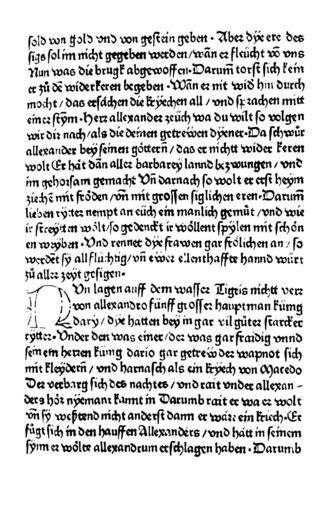 sold von gold vnd von gestein geben · Aber dye ere des
sigs sol im nicht gegeben werden / wān er fleücht vō vns
Nun was die brugk abgewoffen · Darum̄ torst sich kein
er zů dē widerkeren begeben · Wān er nit wid hin durch
mocht / das ersachen die kryechen all / vnd sprachen mitt
einer stym · Herr alexander zeüch wa du wilt so volgen
wir dir nach / als die deinen getrewen dyener · Da schwůr
alexander bey seinen göttern / das er nicht wider keren
wolt Er hät dān aller barbarey lannd bezwungen / vnd
im gehorsam gemacht Vn̄ darnach so wolt er erst heym
ziechē mit fröden / vn̄ mit grossen siglichen eren · Darum̄
lieben rytter nempt an eüch ein manlich gemüt / vnd wie
ir streytten wölt / so gedenckt ir wöllent spylen mit schön
en weyben · Vnd rennet dye frawen gar frölichen an / so
werdēt sy all flüchtig / vn̄ ewer ellenthaffte hannd würt
zů aller zeyt gesigen ·
Vn lagen auff dem wasser Tigris nicht verr
von alexandro fünff grosser hauptman küng
dary / dye hatten bey in gar vil gůter starcker
rytter · Vnder den was einer / der was gar fraidig vnnd
seim ein herren küng dario gar getrew der wapnot sich
mit kleydern / vnd harnasch als ein kryech von Macedo
Der verbarg sich des nachtes / vnd rait vnder allexan-
ders hör nyemant kannt in Darumb rait er wa er wolt
vn̄ sy westend nicht anderst dann er wäre ein kriech · Er
fügt sich in den hauffen Allexanders / vnd hätt in seinem
synn er wölte allexandrum erschlagen haben · Darumb